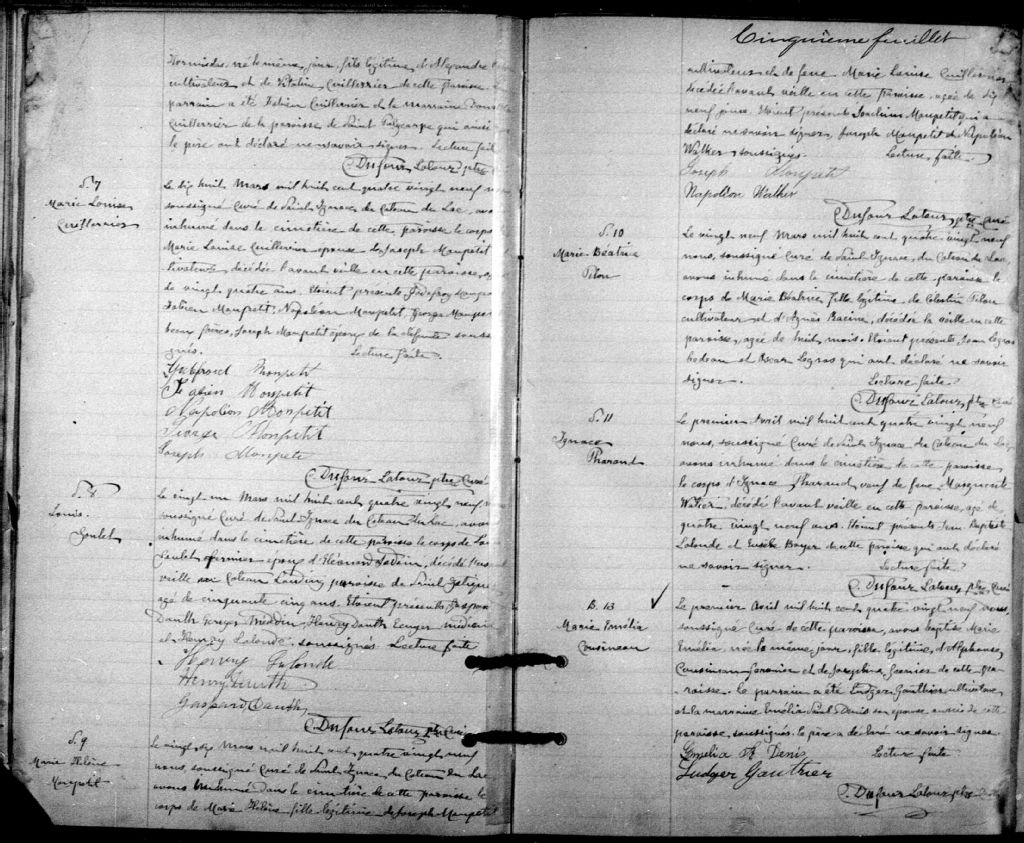 Hormisdas, né le même jour, fils légitime d'Alexandre
cultivateur et de Vitaline Cuillerrier de cette paroisse. Le
parrain a été Fabien Cuillerrier et la marraine
Cuillerrier de la paroisse de Saint Polycarpe qui ainsi
le père ont déclaré ne savoir signer. Lecture faite
C. Dufour Latour, ptre
S. 7
Marie Louise
Cuillerrier
Le dix huit Mars mil huit cent quatre vingt neuf
soussigné Curé de Saint Ignace du Coteau du Lac, avons
inhumé dans le cimetière de cette paroisse le corps
Marie Louise Cuillerrier épouse de Joseph Monpetit
cultivateur, décédée l'avant veille en cette paroisse,
de vingt quatre ans. Etoient présents Godefroy
Fabien Monpetit, Napoléon Monpetit, George
beaux frères, Joseph Monpetit époux de la défunte
signés. Lecture faite.
Godfroid Monpetit
Fabien Monpetit
Napoléon Monpetit
George Monpetit
Joseph Monpetit
C. Dufour Latour, ptre Curé
S. 8
Louis
Goulet
Le vingt un Mars mil huit cent quatre vingt neuf
soussigné Curé de Saint Ignace du Coteau du Lac, avons
inhumé dans le cimetière de cette paroisse le corps de Louis
Goulet fermier époux d'Eléonard, décédé l'avant
veille au Coteau Landing paroisse de Saint Zotique
agé de cinquante cinq ans. Etoient présents Gaspard
Dauth Henry Dauth Ecuyer médecin
et Henry Lalonde, soussignés Lecture faite
Henry Lalonde
Henry Dauth
Gaspard Dauth
C. Dufour Latour, ptre Curé
S. 9
Marie Hélène
Monpetit
Le vingt Mars mil huit cent quatre vingt neuf
nous, soussigné Curé de Saint Ignace, du Coteau du Lac
avons inhumé dans le cimetière de cette paroisse le
corps de Marie Hélène fille légitime de Joseph Monpetit
Cinquième feuillet
cultivateur et de feue Marie Louise Cuillerrier
décédée l'avant veille en cette paroisse, agée de dix
neuf jours. Etoient présents Monpetit qui a
déclaré ne savoir signer, Joseph Monpetit et Napoléon
Walker, soussignés. Lecture faite
Joseph Monpetit
Napoléon Walker
C. Dufour Latour, ptre Curé
S. 10
Marie Béatrice
Pilon
Le vingt neuf Mars mil huit cent quatre vingt neuf
nous, soussigné Curé de Saint Ignace, du Coteau du Lac
avons inhumé dans le cimetière de cette paroisse le
corps de Marie Béatrice, fille légitime de Célestin Pilon
cultivateur et d'Agnès Racine, décédée la veille en cette
paroisse, agée de huit mois. Etoient présents Jean Legros
bedeau et Oscar Legros qui ont déclaré ne savoir
signer. Lecture faite.
C. Dufour Latour, ptre Curé
S. 11
Ignace
Pharand
Le premier Avril mil huit cent quatre vingt neuf
nous, soussigné Curé de Saint Ignace du Coteau du Lac
avons inhumé dans le cimetière de cette paroisse,
le corps d'Ignace Pharand, veuf de feue Marguerite
Watier, décédé l'avant veille en cette paroisse, agé de
quatre vingt neuf ans. Etoient présents Jean Baptiste
Lalonde et Eusèbe Boyer de cette paroisse qui ont déclaré
ne savoir signer. Lecture faite.
C. Dufour Latour, ptre Curé
B. 13
Marie Emélia
Cousineau
Le premier Avril mil huit cent quatre vingt neuf nous,
soussigné Curé de cette paroisse, avons baptisé Marie
Emélia, née le même jour, fille légitime, d'Alphonse
Cousineau fermier et de Josephine de cette pa-
roisse. Le parrain a été Ludger Gauthier cultivateur,
et la marraine Emélia Saint Denis son épouse aussi de cette
paroisse, soussignés. le père a déclaré ne savoir signer.
Emélia St Denis Lecture faite
Ludger Gauthier
C. Dufour Latour, ptre